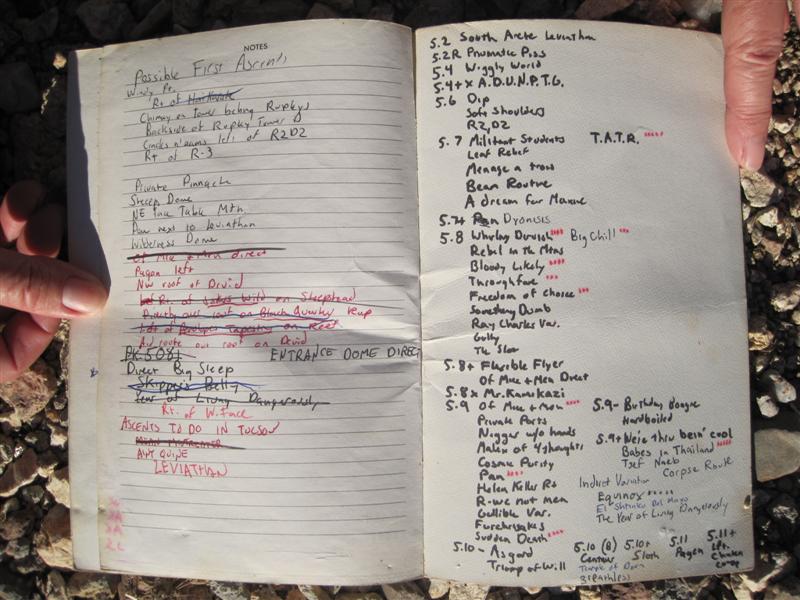 NOTES
Possible First Ascents
Windy Pt.
Rt of
Chimney on Tower behind Rupleys
Backside of Rupley Tower
Cracks n' seams left of R2D2
Rt of R-3
Private Pinnacle
Steep Dome
NE face Table Mtn.
Paw next to Leviathan
Wilderness Dome
Of Mice + Men direct
Pagan left
NW roof of Druid
Rt. of Wild on Sheepshead
Directly out roof on Black Quacker
Lft of Tapestry on Reef
Ad route out roof on Druid
ENTRANCE DOME DIRECT
Direct Big Sleep
Skippers Belly
Year of Living Dangerously
Rt. of W. Face
ASCENTS TO DO IN TUCSON
LEVIATHAN
5.2 South Arete Leviathan
5.2R Pneumatic Piss
5.4 Wiggly World
5.4+x A.D.U.N.P.T.G.
5.6 Dip
Soft Shoulders
R2,D2
5.7 Militant Students T.A.T.R. ****
Leaf Relief
Menage a trois
Bean Routine
A dream for Maxine
5.7+ Dyonisis
5.8 Whirling Dervish **** Big Chill ***
Rebel in the Mtns
Bloody Likely ****
Throughfare ***
Freedom of choice ***
Something Dumb
Ray Charles Var.
Gully
The Slot
5.8+ Flexible Flyer
Of Mice + Men Direct
5.8x Mr. Kamikazi
5.9 Of Mice + Men ****
Private Parts
Nigger w/o hands
Malex of 4 thoughts
Cosmic Purity
Pan ****
Helen Keller Rt
R-we not men
Gullible Var.
Furchrisakes
Sudden Death ****
5.9- Birthday Boogie
Hardboiled
5.9+ We're thru bein' cool
Babes in Thailand ****
Tsef Naeb
Corpse Route
Indirect Variation
Equinox *****
El Shrinko Del Mayo
The Year of Living Dangerously
5.10- Asgard
Triump of Will
5.10 (B) Centaur
Temple of Doom
Breathless
5.10+ Sloth
5.11 Pagen
5.11+ Lft. Chicken coop